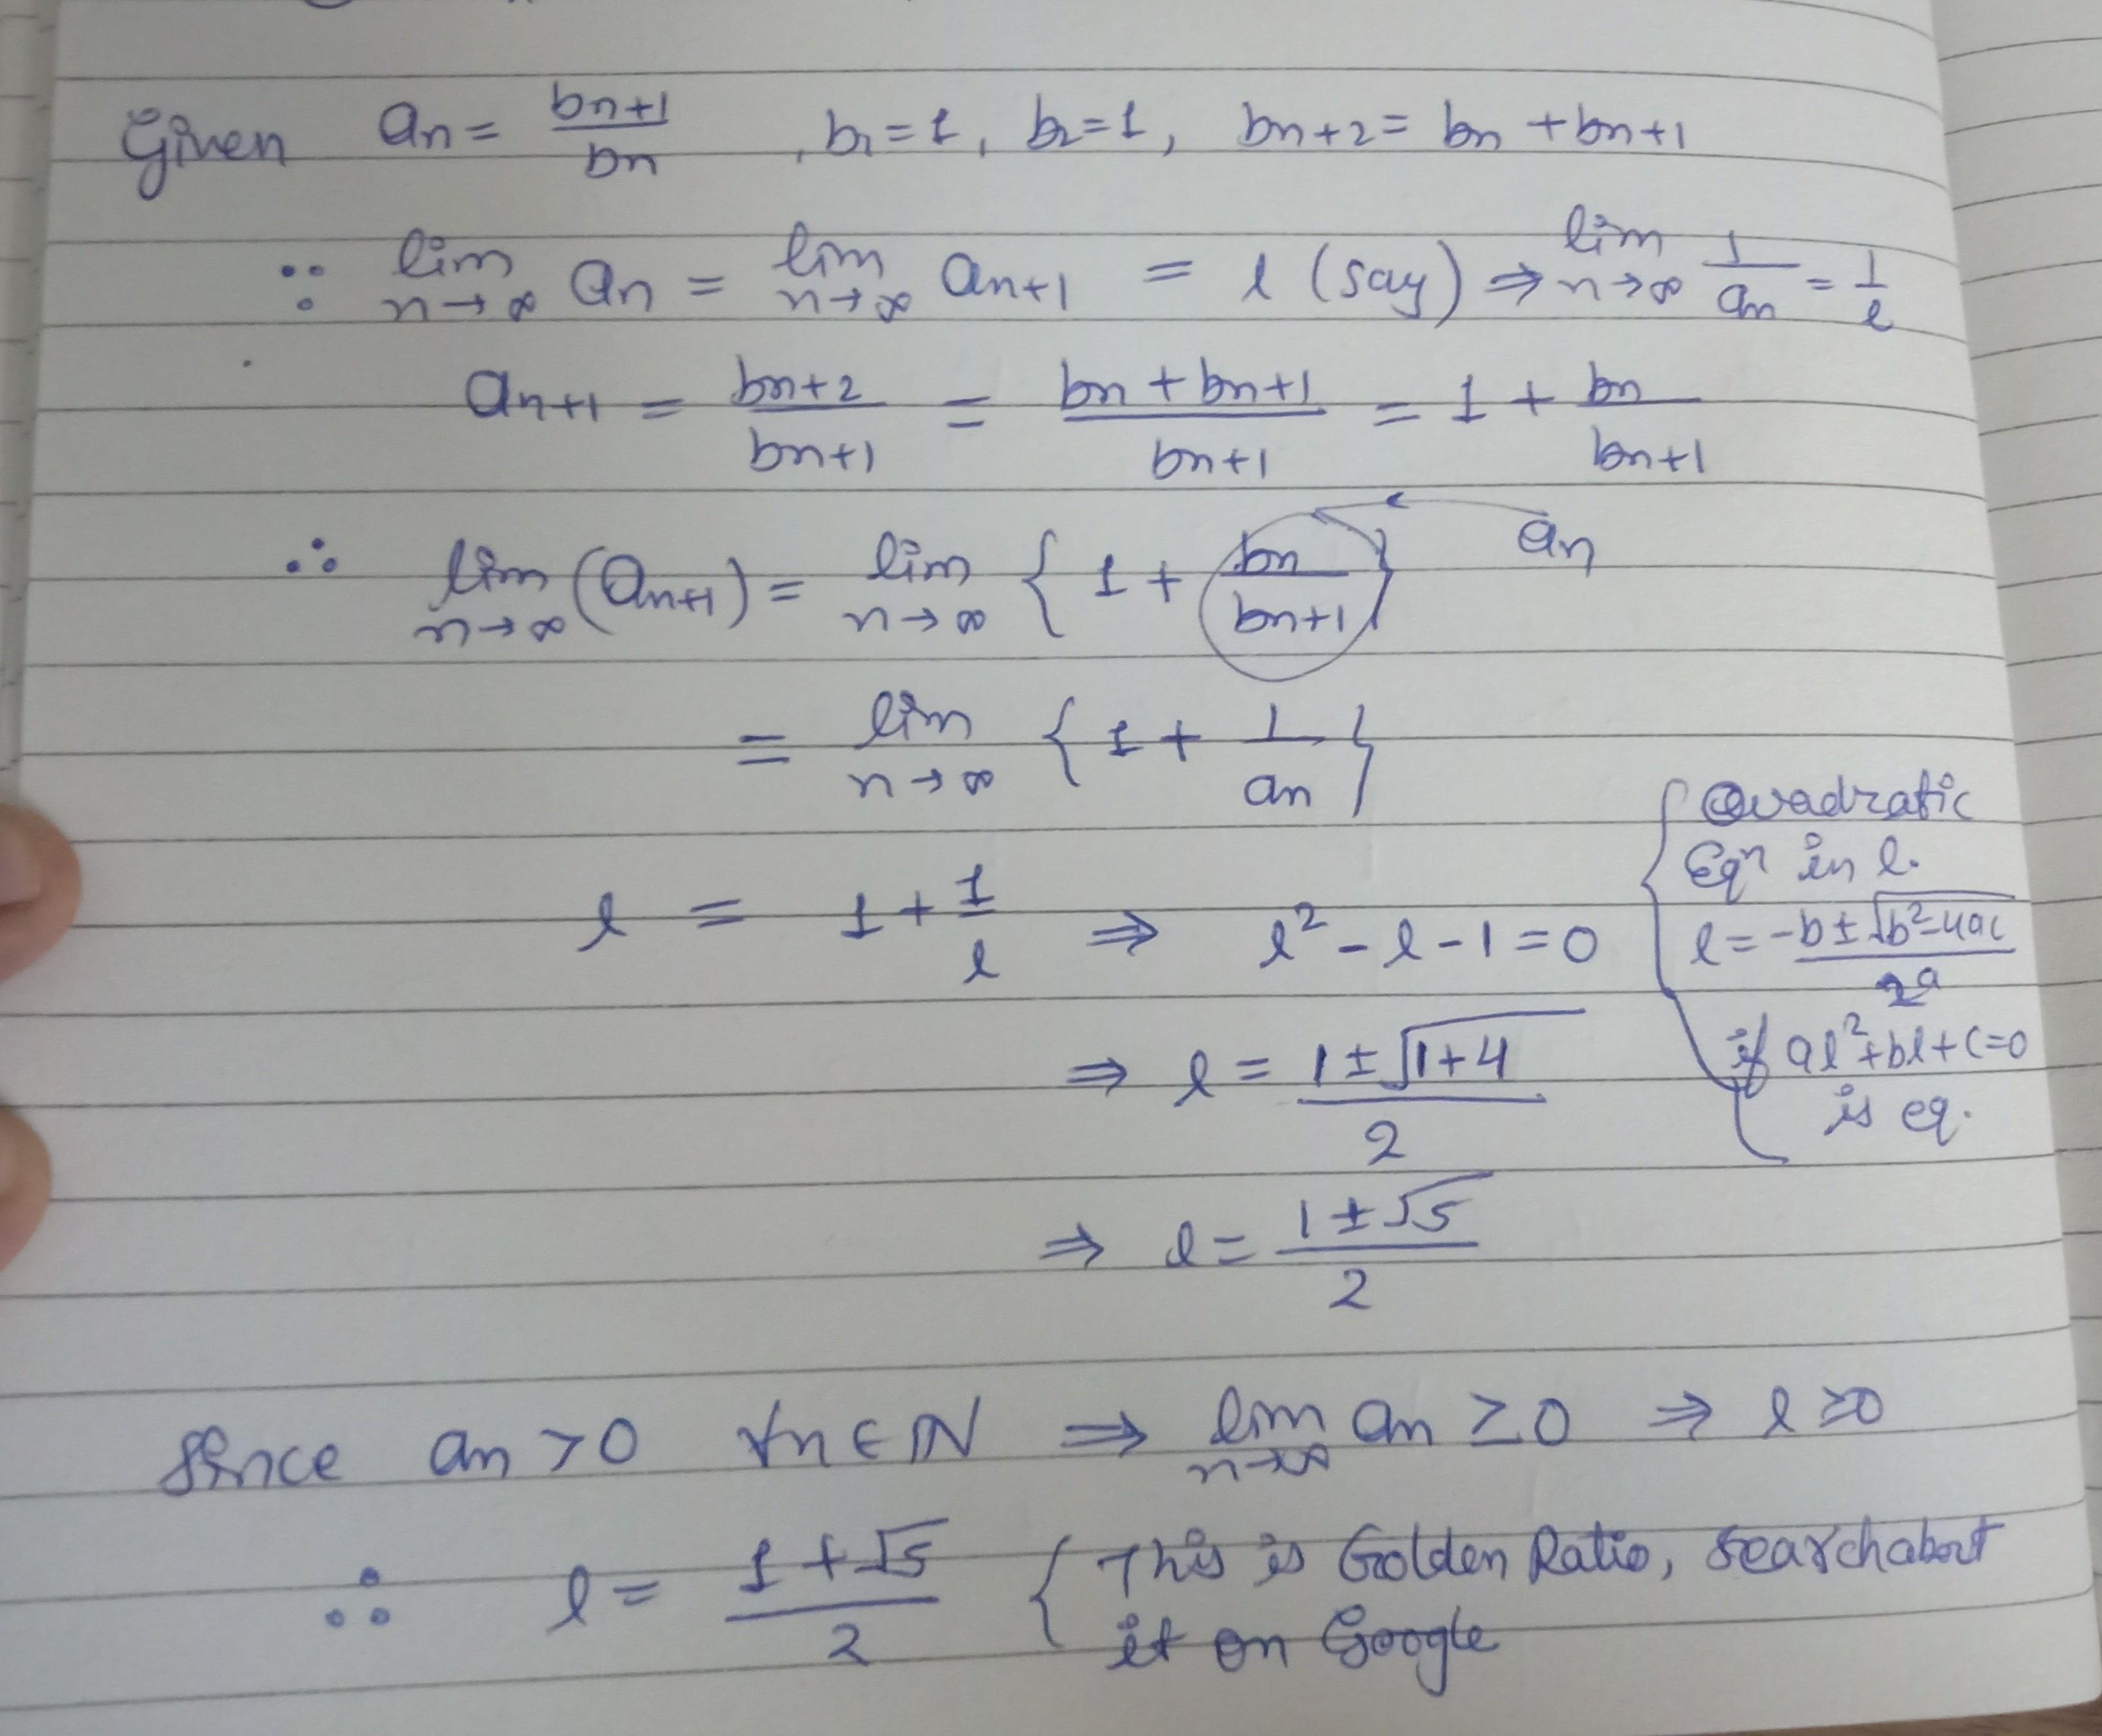 Given an = bn+1/bn , b1 = 1, b2 = 1, bn+2 = bn + bn+1
∵ lim n→∞ an = lim n→∞ an+1 = l (say) ⇒ lim n→∞ 1/an = 1/l
an+1 = bn+2/bn+1 = (bn + bn+1)/bn+1 = 1 + bn/bn+1
∴ lim n→∞ (an+1) = lim n→∞ { 1 + bn/bn+1 } an
= lim n→∞ { 1 + 1/an }
l = 1 + 1/l ⇒ l² - l - 1 = 0
⇒ l = (1 ± √(1+4))/2
⇒ l = (1 ± √5)/2
{ Quadratic
Eqn in l.
l = (-b ± √(b²-4ac))/2a
if al²+bl+c=0
is eq.
Since an > 0 ∀n ∈ N ⇒ lim n→∞ an ≥ 0 ⇒ l ≥ 0
∴ l = (1 + √5)/2 { This is Golden Ratio, Search about
it on Google